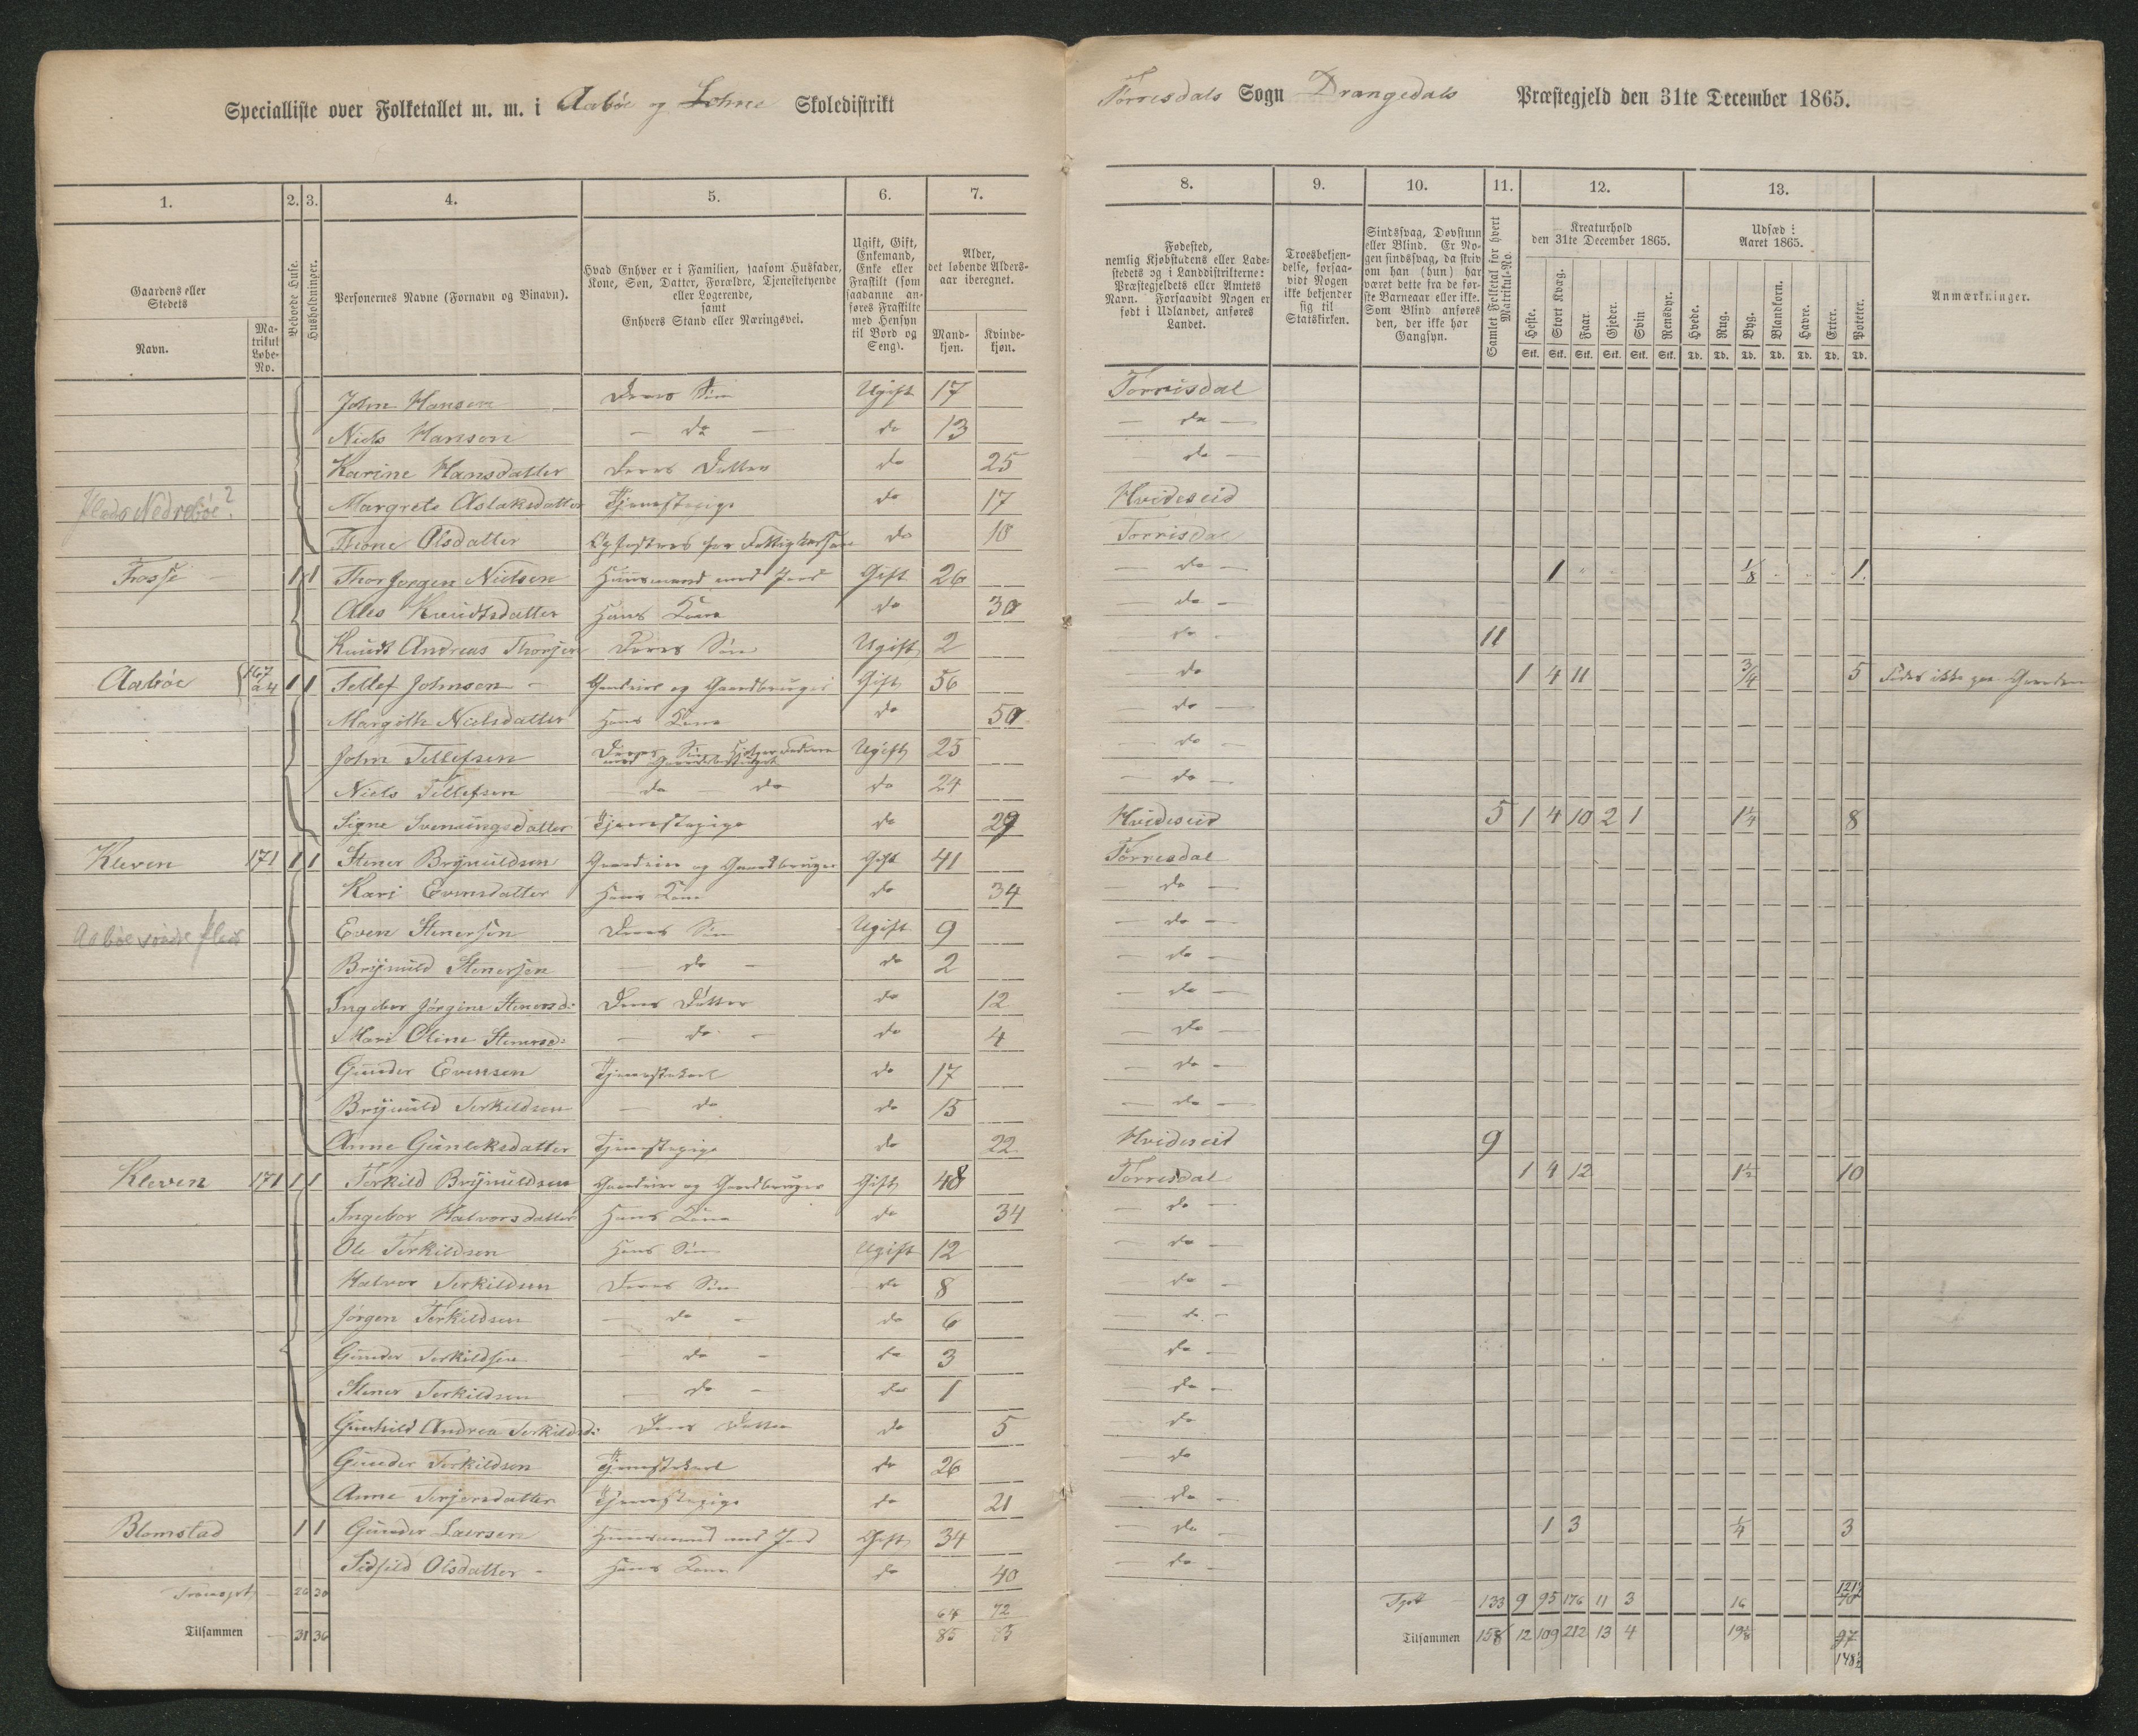 Specialliste over Folketallet m. m. i Aabøe og Lohne Skoledistrikt
Torrisdals Sogn Drangedals Præstegjeld den 31te December 1865.
1. 2. 3. 4. 5. 6. 7. 8. 9. 10. 11. 12. 13.
Gaardens eller Stedets
Navn.
Matrikul Løbe-No.
Beboede Huse.
Husholdninger.
Personernes Navne (Fornavn og Binavn).
Hvad Enhver er i Familien, saasom Husfader, Kone, Søn, Datter, Forældre, Tjenestetyende eller Logerende, samt Enhvers Stand eller Næringsvei.
Ugift, Gift, Enkemand, Enke eller Fraskilt (som saadanne anføres Fraskilte med Hensyn til Bord og Seng).
Alder, det løbende Aldersaar iberegnet.
Mandkjøn. Kvindekjøn.
Fødested, nemlig Kjøbstadens eller Ladestedets og i Landdistrikterne: Præstegjeldets eller Amtets Navn. Forsaavidt Nogen er født i Udlandet, anføres Landet.
Troesbekjendelse, forsaavidt Nogen ikke bekjender sig til Statskirken.
Sindssvag, Døvstum eller Blind. Er Nogen sindssvag, da skriv om han (hun) har været dette fra de første Barneaar eller ikke. Som Blind anføres den, der ikke har Gangsyn.
Samlet Folketal for hvert Matrikul-No.
Kreaturhold den 31te December 1865.
Heste. Stort Kvæg. Faar. Gjeder. Svin Rensdyr.
Stk. Stk. Stk. Stk. Stk. Stk.
Udsæd i Aaret 1865.
Hvede. Rug. Byg. Blandkorn. Havre. Erter. Poteter.
Td. Td. Td. Td. Td. Td. Td.
Anmærkninger.
John Hansen Deres Søn Ugift 17 Torrisdal
Niels Hansen — do — do 13 — do —
Karine Hansdatter Deres Datter do 25 — do —
Plads Nedrebøe? Margrete Aslaksdatter Tjenestepige do 17 Hvideseid
Thone Olsdatter do 10 Torrisdal
Frossi 1 1 Thor Jørgen Nielsen Huusmand med Jord Gift 26 — do — 1 1/8 1
Ales Knudtsdatter Hans Kone do 30 — do —
Knudt Andreas Thorjen Deres Søn Ugift 2 do 11
Aabøe 167 a4 1 1 Tellef Johnsen Gaardeier og Gaardbruger Gift 56 do 1 4 11 3/4 5 Føder ikke paa Gaarden
Margith Nielsdatter Hans Kone do 50 — do —
John Tellefsen Deres Søn, Hjelper Faderen med Gaardsbruget Ugift 25 — do —
Niels Tellefsen do do do 24 — do —
Signe Svenungsdatter Tjenestepige do 29 Hvideseid 5 1 4 10 2 1 1 1/4 8
Kleven 171 1 1 Stener Brynuldsen Gaardeier og Gaardbruger Gift 41 Torrisdal
Kari Evensdatter Hans Kone do 34 — do —
Aabøe søndre plads Even Stenersen Deres Søn Ugift 9 — do —
Brynuld Stenersen — do — do 2 — do —
Ingebor Jørgine Stenersd: Deres Datter do 12 — do —
Mari Oline Stenersd: — do — do 4 — do —
Gunder Evensen Tjenestekarl do 17 — do —
Brynuld Terkildsen — do do 15 — do —
Anne Gunleksdatter Tjenestepige do 22 Hvideseid 9
Kleven 171 1 1 Terkild Brynuldsen Gaardeier og Gaardbruger Gift 48 Torrisdal 1 4 12 1 1/2 10
Ingebor Halvorsdatter Hans Kone do 34 — do —
Ole Terkildsen Hans Søn Ugift 12 — do —
Halvor Terkildsen Deres Søn do 8 do —
Jørgen Terkildsen — do — do 6 do —
Gunder Terkildsen — do — do 3 — do —
Stener Terkildsen — do — do 1 — do —
Gunhild Andrea Terkildsd: Deres Datter do 5 — do
Gunder Terkildsen Tjenestekarl do 26 — do
Anne Terjersdatter Tjenestepige do 21 — do —
Blomstad 1 1 Gunder Larsen Huusmand med Jord Gift 34 — do — 1 3 1/4 3
Sidseld Olsdatter Hans Kone do 40 — do —
Transport 26 30 64 72 Tpt 133 9 95 176 11 3 16 121 1/2
Tilsammen 31 36 85 83 Tilsammen 158 12 109 212 13 4 19 1/8 97
148 1/2